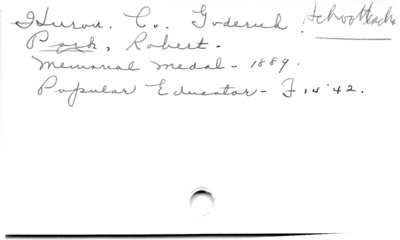 Huron. Co. Goderich. School teacher
Park, Robert.
Memorial Medal - 1889.
Popular Educator - F 14 '42.